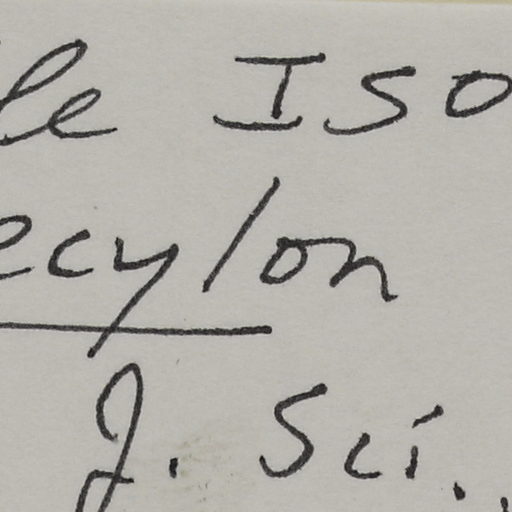 le Iso
ecylon
J. Sci.,